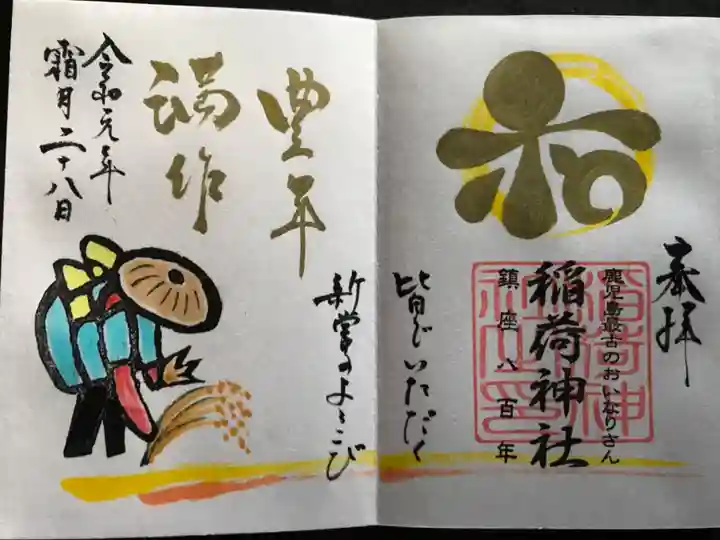 奉拝
鹿児島最古のおいなりさん
稲荷神社
鎮座八百年
稲荷神
社之印
和
皆でいただく
新嘗のよろこび
豊年
満作
令和元年
霜月二十八日